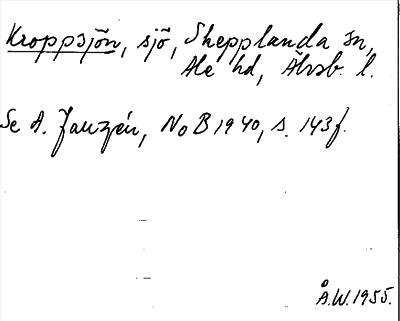 Kroppsjön, sjö, Skepplanda sn,
Ale hd, Älvsb. l.
Se A. Janzén, NoB 1940, s. 143 f.
Å.W. 1955.